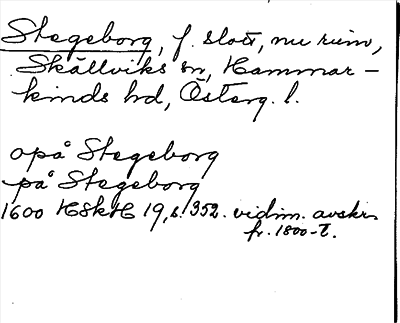 Stegeborg, f. slott, nu ruin,
Skällviks sn, Hammar-
kinds hd, Österg. l.
opå Stegeborg
på Stegeborg
1600 HSkH 19, s. 352. vidim. avskr.
fr. 1800-t.